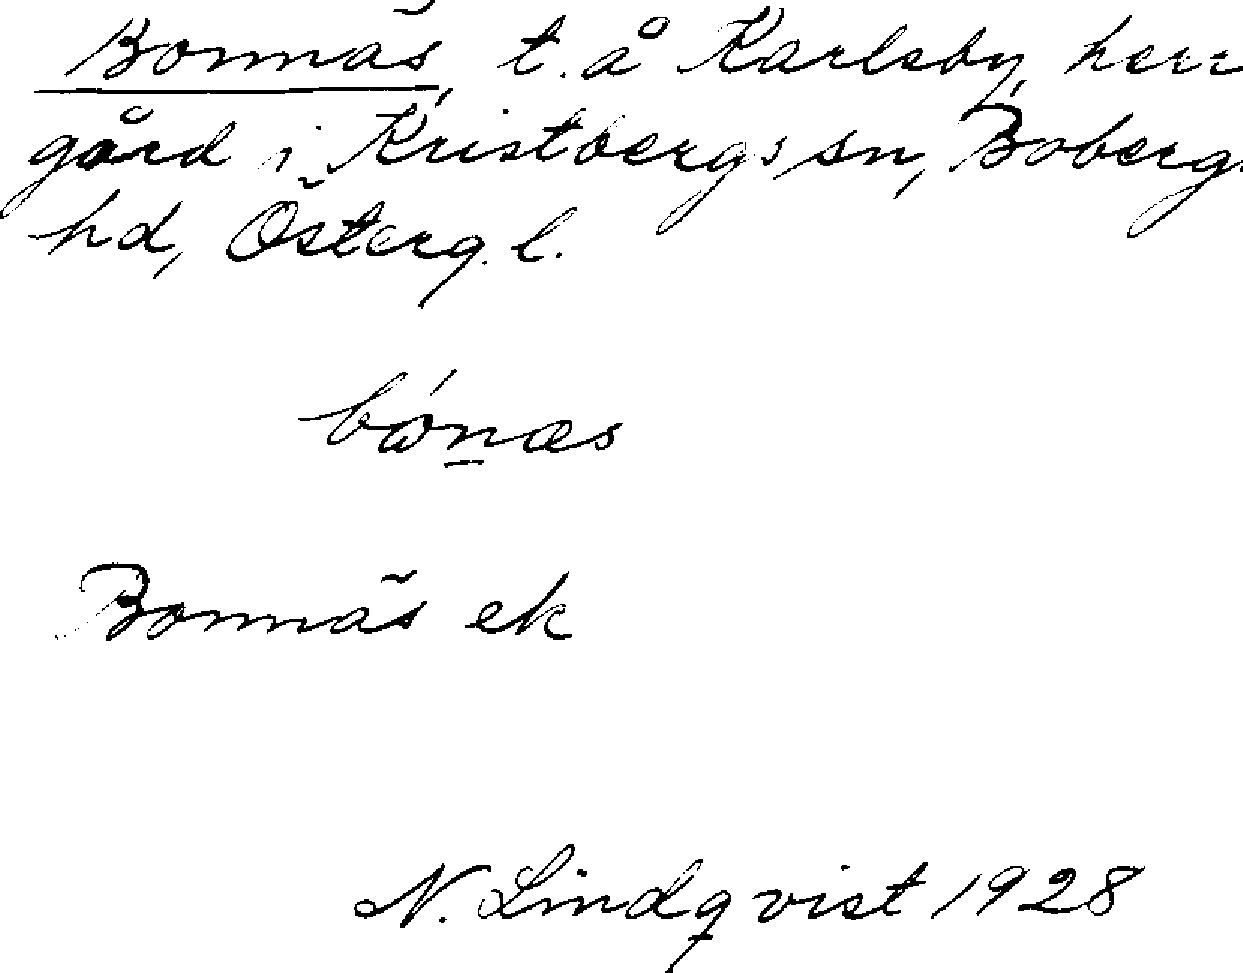 Bonnäs, t. å Karlsby, herr
gård i Kristbergs sn, Bobergs
hd, Österg. l.
Bonnäs ek
N. Lindqvist 1928